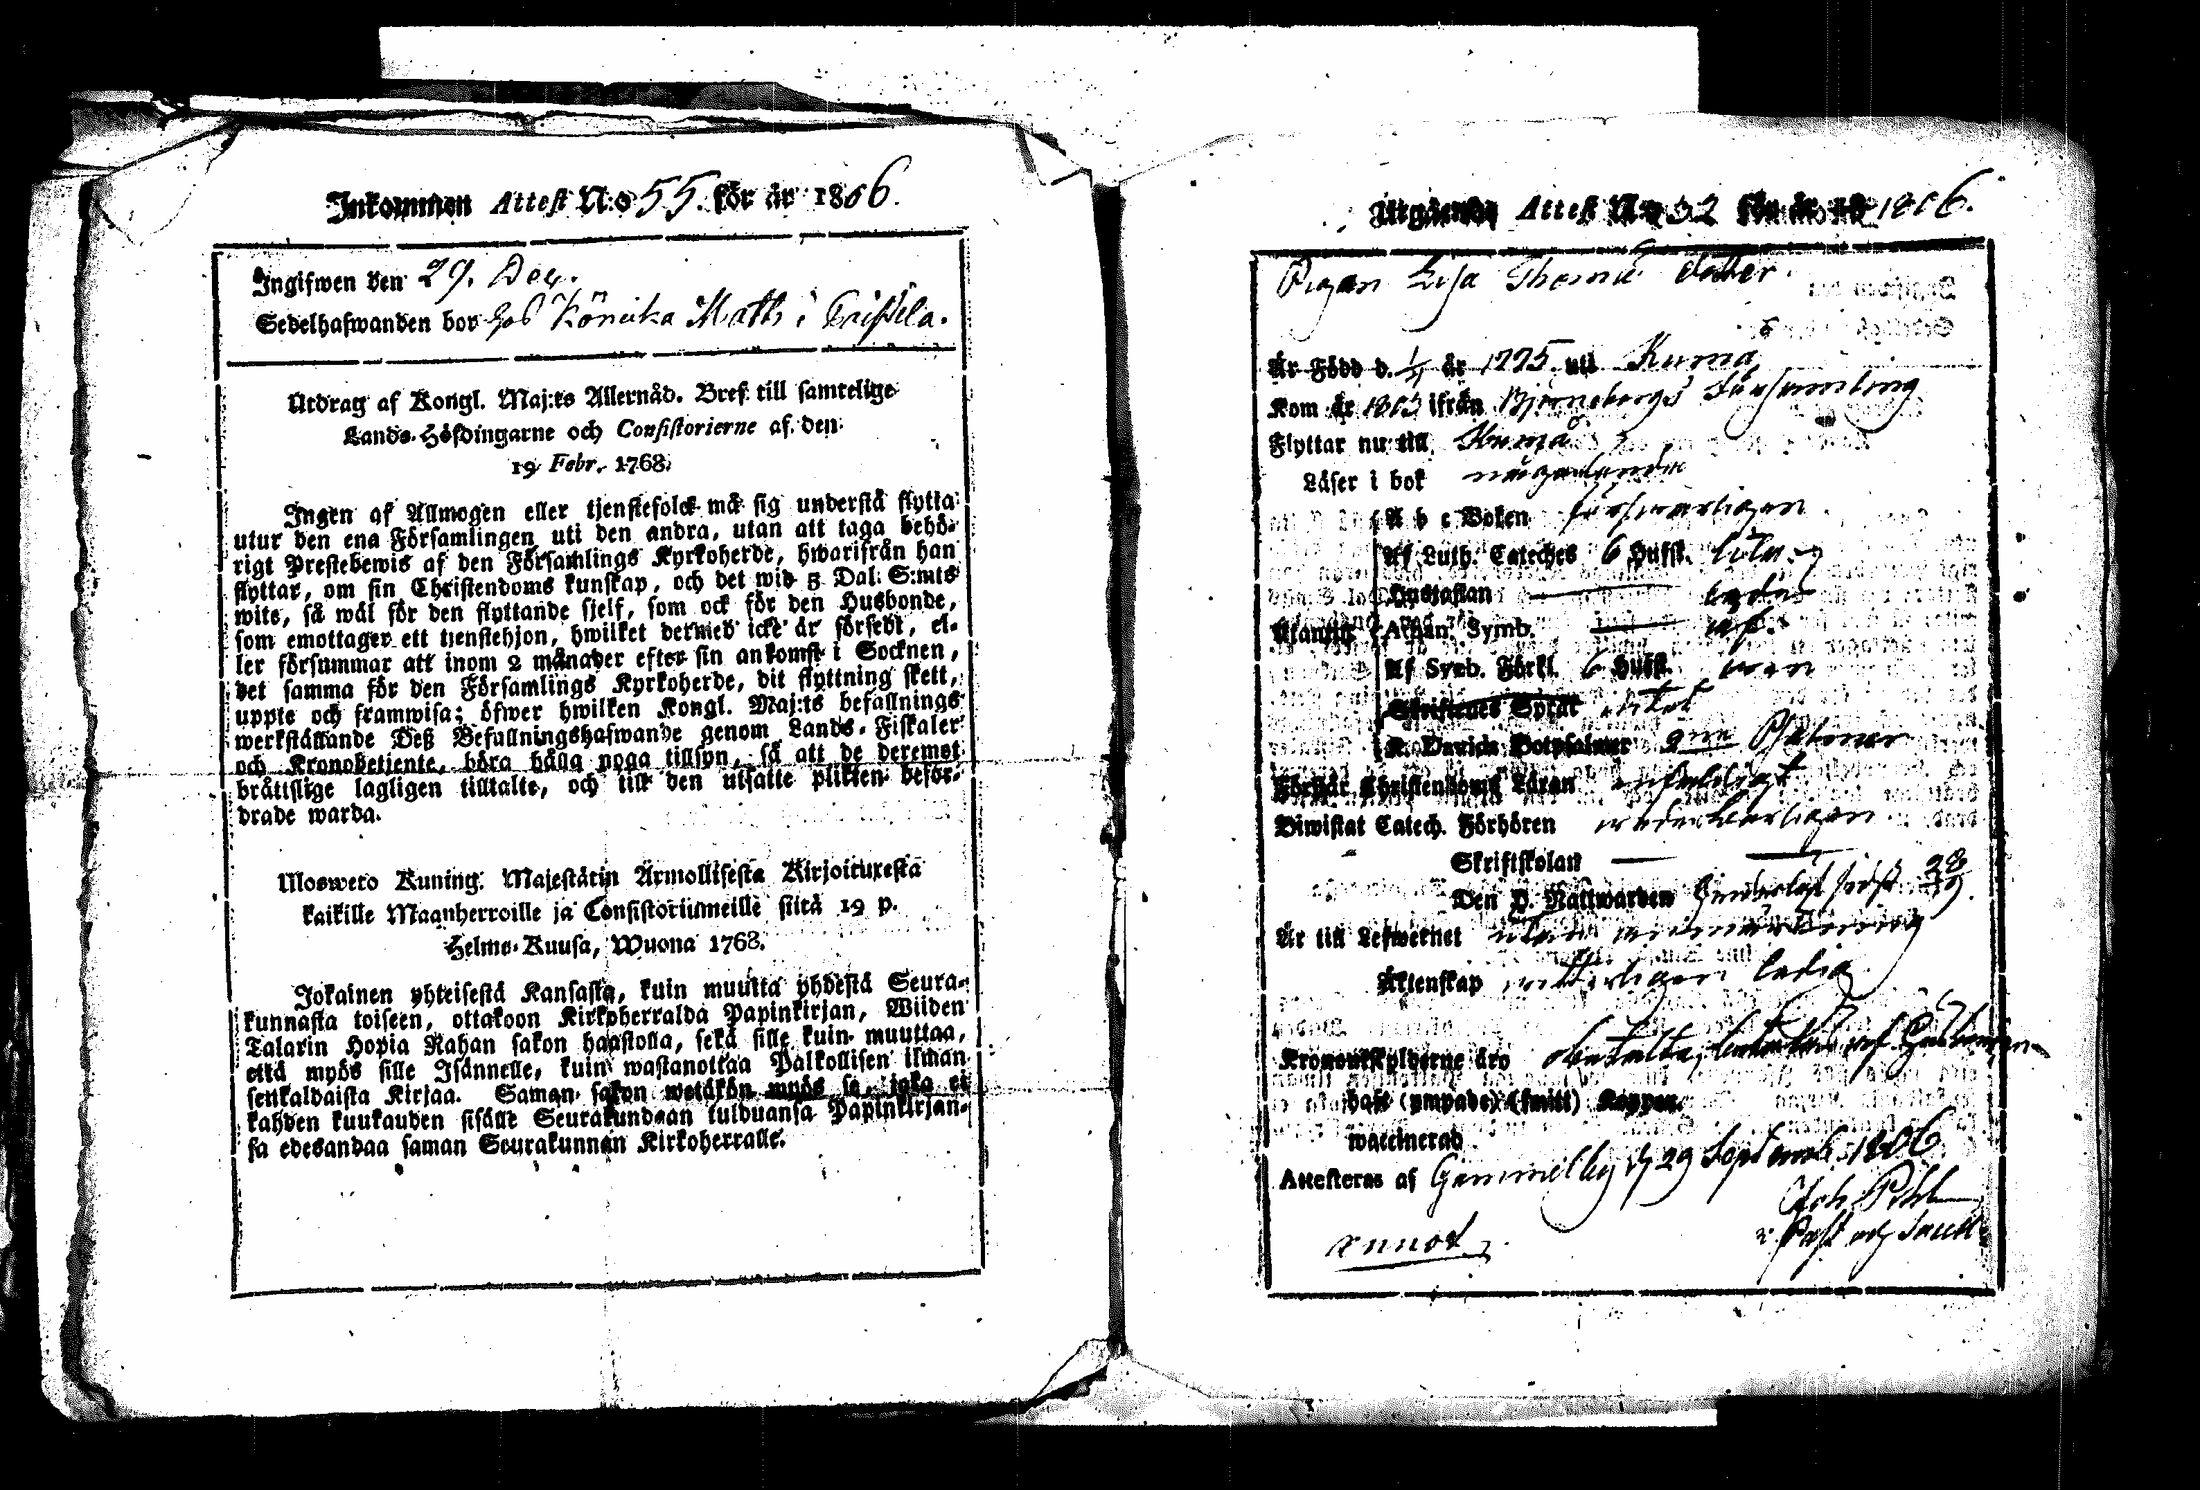 Inkommen Attest N:o 55. för år 1806.
Ingifwen den 29. Dec.
Sedelhafwanden bor hos Könicka Matts i
Utdrag af Kongl. Maj:ts Allernåd. Bref till samtelige
Lands-Höfdingarne och Consistorierne af den
19 Febr. 1768.
Ingen af Allmogen eller tjenstefolck må sig understå flytta
utur den ena Församlingen uti den andra, utan att taga behö-
rigt Prestebewis af den Församlings Kyrkoherde, hwarifrån han
flyttar, om sin Christendoms kunskap, och det wid 5 Dal. S:mts
wite, så wäl för den flyttande sjelf, som ock för den Husbonde,
som emottager ett tienstehjon, hwilket dermed icke är försedt, el-
ler försummar att inom 2 månader efter sin ankomst i Socknen,
det samma för den Församlings Kyrkoherde, dit flyttning skett,
uppte och framwisa; öfwer hwilken Kongl. Maj:ts befallnings
werkställande Deß Befallningshafwande genom Lands-Fiskaler
och Kronobetiente, böra hålla noga tillsyn, så att de deremot
bråttslige lagligen tilltalte, och till den utsatte plikten beför-
drade warda.
Ulosweto Kuning. Majestätin Armollisesta Kirjoituxesta
kaikille Maanherroille ja Consistoriumeille siitä 19 p.
Helme-Kuusa, Wuona 1768.
Jokainen yhteisestä Kansasta, kuin muutta yhdestä Seura-
kunnasta toiseen, ottakoon Kirkoherralda Papinkirjan, Wiiden
Talarin Hopia Rahan sakon haastolla, sekä sille kuin muuttaa,
että myös sille Isännelle, kuin wastanottaa Palkollisen ilman
senkaldaista Kirjaa. Saman sakon wetäkön myös se, joka ei
kahden kuukauden sisälle Seurakundaan tulduansa Papinkirjan-
sa edesandaa saman Seurakunnan Kirkoherralle.
Utgående Attest N:o 32 för år 1806.
Pigan Lisa Thomæ dotter.
Är Född d. år 1775 uti Kumå
Kom år 1803 ifrån Björneborgs Församling
Flyttar nu till Kumå
Läser i bok någorlunda
A b c Boken försvarligen
Af Luth. Cateches 6 Hufst.
Hustaflan
Utantill Athan. Symb.
Af Symb. Förkl. 6 Hufst.
Skriftenes Språk intet
K. Davids Botpsalmer Psalmer
Förstår Christendoms Läran enfaldigt
Biwistat Catech. Förhören
Skriftskolan
Den H. Nattwarden
Är till Lefwernet utan anmärkning
Äktenskap ledig
Kronoutskylderne äro
haft (ympade) (smitt) Koppor.
waccinerad
Attesteras af Gammelby d. 29 September 1806
Joh. Pihl